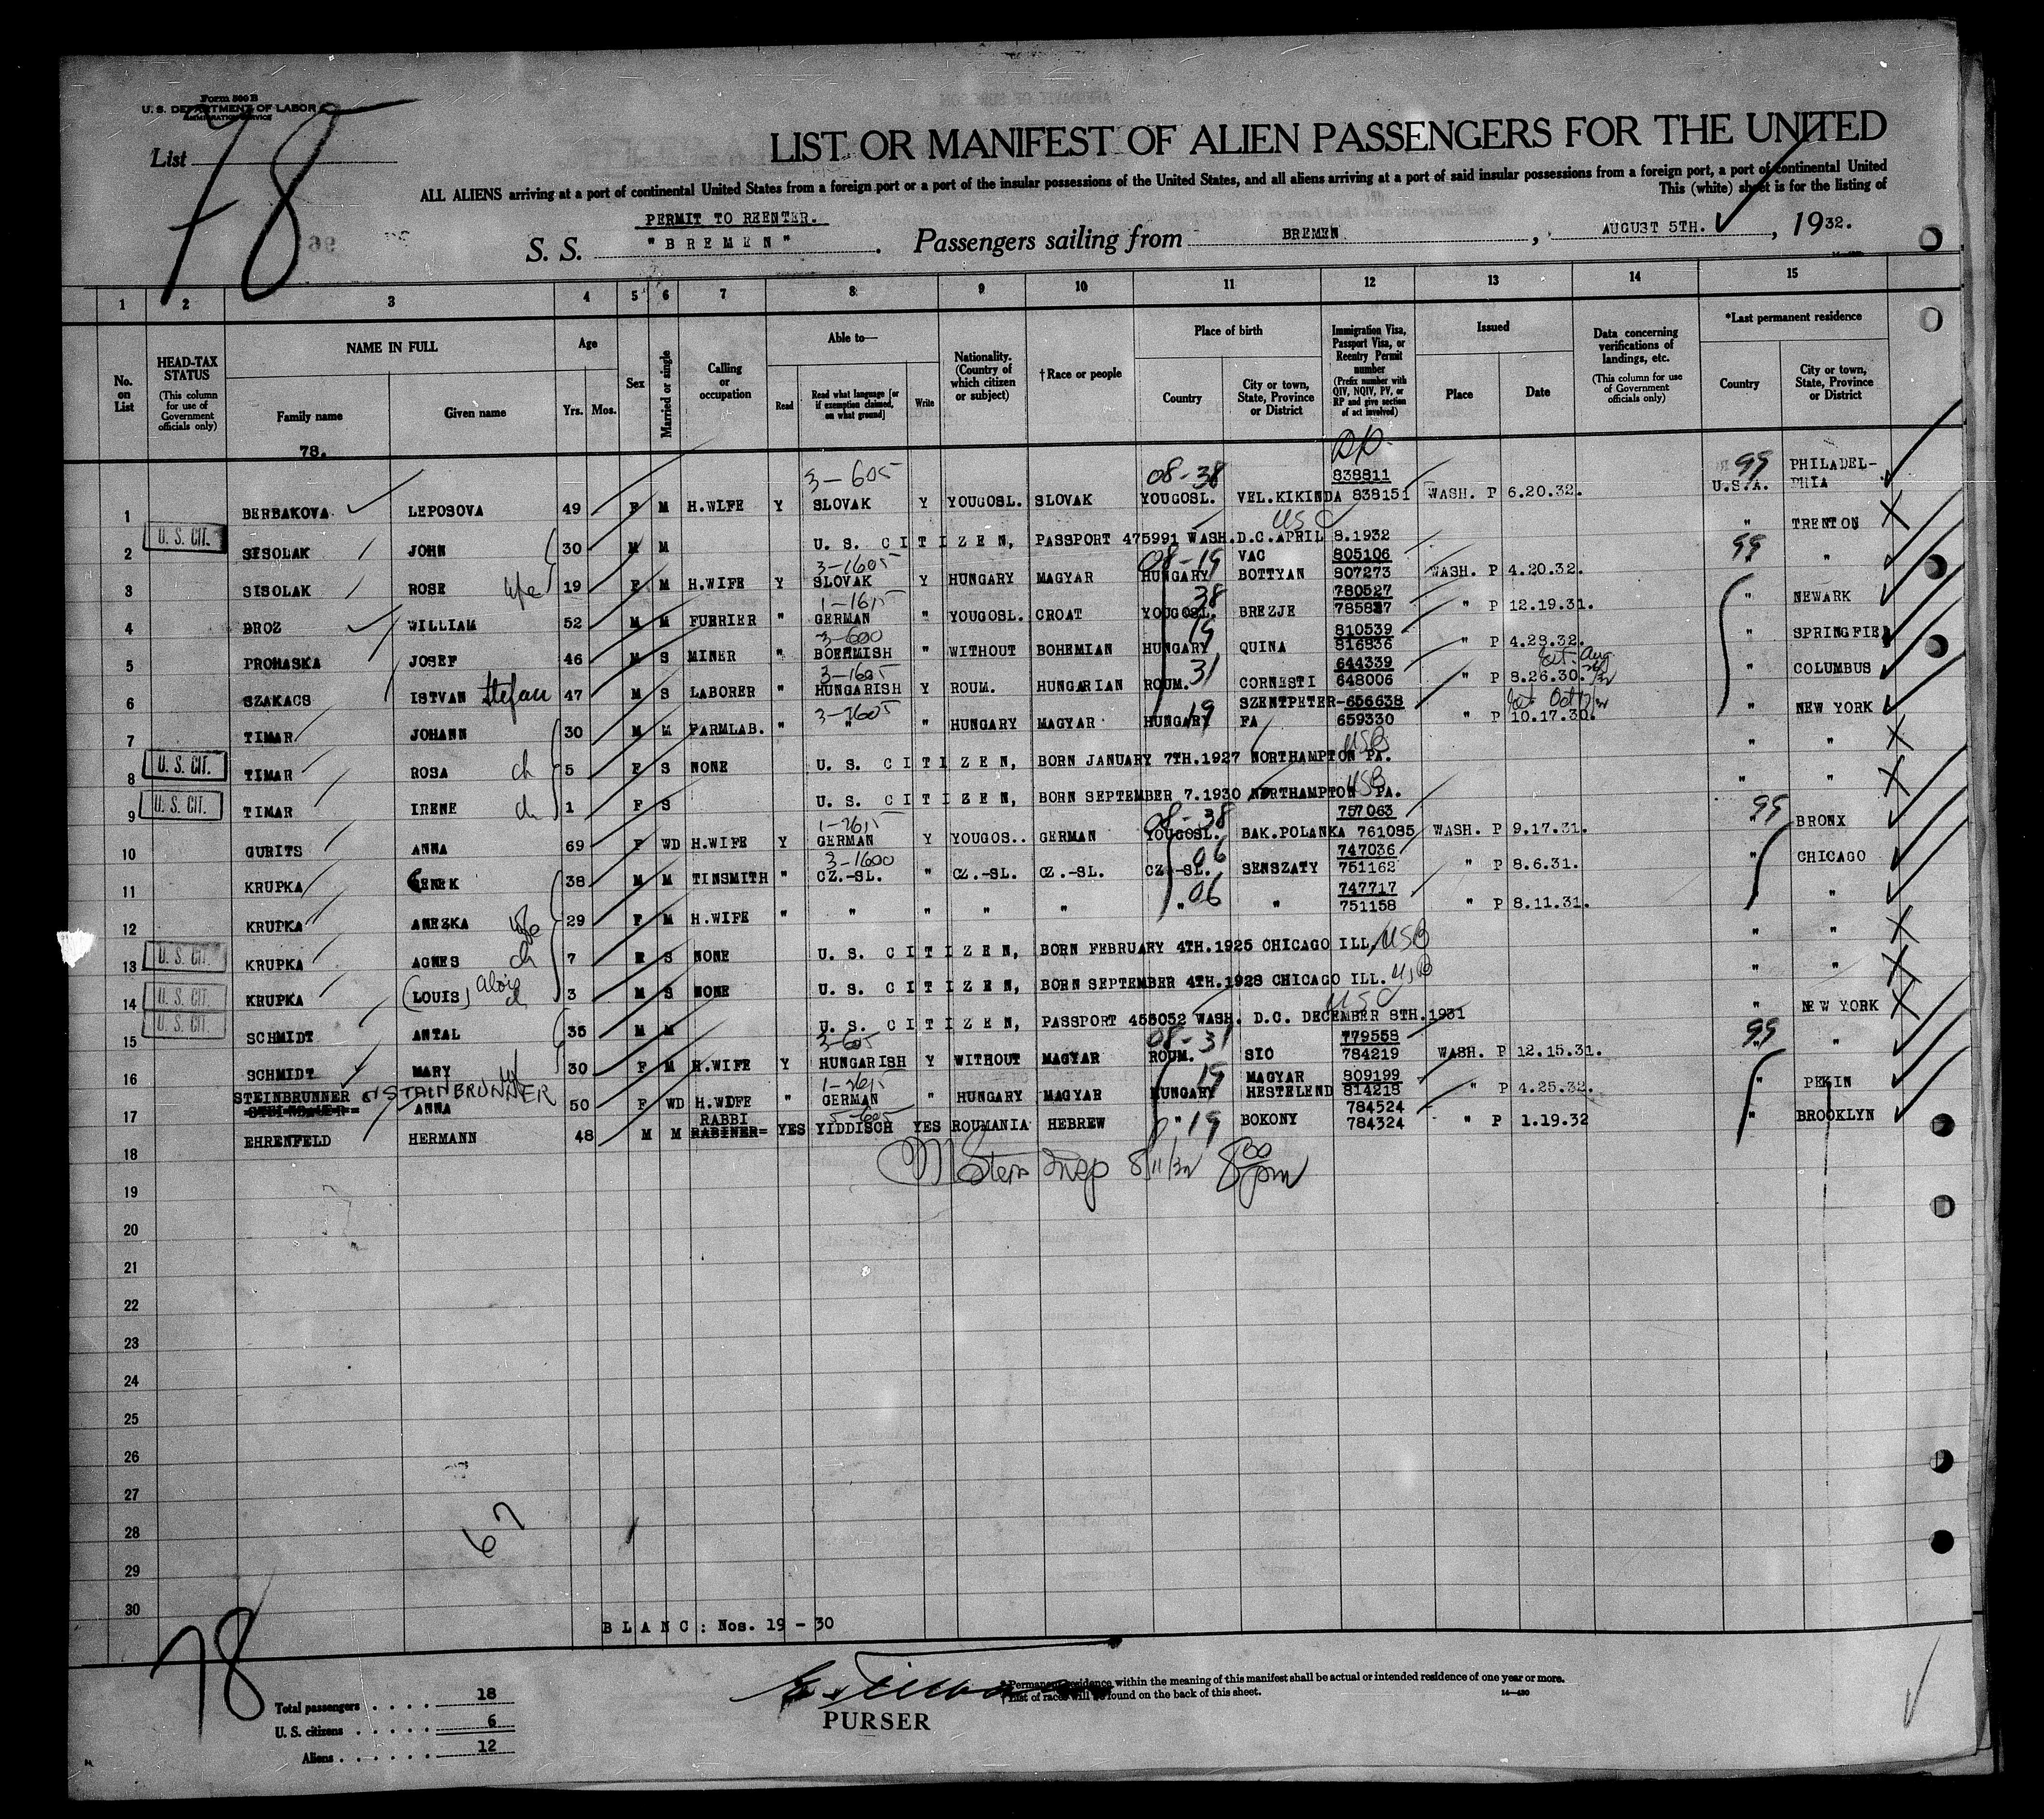 Form 500 B
U. S. DEPARTMENT OF LABOR
IMMIGRATION SERVICE
List 78
LIST OR MANIFEST OF ALIEN PASSENGERS FOR THE UNITED
ALL ALIENS arriving at a port of continental United States from a foreign port or a port of the insular possessions of the United States, and all aliens arriving at a port of said insular possessions from a foreign port, a port of continental United
This (white) sheet is for the listing of
PERMIT TO REENTER.
S. S. "BREMEN". Passengers sailing from BREMEN, AUGUST 5TH., 1932.
1 2 3 4 5 6 7 8 9 10 11 12 13 14 15
No. on List
HEAD-TAX STATUS (This column for use of Government officials only)
NAME IN FULL
Family name
Given name
Age
Yrs. Mos.
Sex
Married or single
Calling or occupation
Able to—
Read
Read what language [or if exemption claimed, on what ground]
Write
Nationality. (Country of which citizen or subject)
†Race or people
Place of birth
Country
City or town, State, Province or District
Immigration Visa, Passport Visa, or Reentry Permit number
(Prefix number with QIV, NQIV, PV, or RP and give section of act involved)
Issued
Place
Date
Data concerning verifications of landings, etc.
(This column for use of Government officials only)
*Last permanent residence
Country
City or town, State, Province or District
78.
3-605 08-38 838811 99 PHILADEL-
1 BERBAKOVA LEPOSOVA 49 F M H.WIFE Y SLOVAK Y YOUGOSL. SLOVAK YOUGOSL. VEL.KIKINDA 838151 WASH. P 6.20.32. U.S.A. PHIA
USC
2 U. S. CIT. SISOLAK JOHN 30 M M U. S. CITIZEN, PASSPORT 475991 WASH.D.C.APRIL 8.1932 " TRENTON
3-1605 08-19 VAC 805106 99
3 SISOLAK ROSE wife 19 F M H.WIFE Y SLOVAK Y HUNGARY MAGYAR HUNGARY BOTTYAN 807273 WASH. P 4.20.32. "
38 780527
4 BROZ WILLIAM 52 M M FURRIER " GERMAN " YOUGOSL. CROAT YOUGOSL. BREZJE 785827 " P 12.19.31. " NEWARK
3-600 19 810539
5 PROHASKA JOSEF 46 M S MINER " BOEHMISH " WITHOUT BOHEMIAN HUNGARY QUINA 816836 " P 4.28.32. " SPRINGFIELD
3-1605 31 644339 Ext. Aug
6 SZAKACS ISTVAN Stefan 47 M S LABORER " HUNGARISH Y ROUM. HUNGARIAN ROUM. CORNESTI 648006 " P 8.26.30. " COLUMBUS
3-1605 19 SZENTPETER- 656638 Ext Oct
7 TIMAR JOHANN 30 M M FARMLAB. " " " HUNGARY MAGYAR HUNGARY FA 659330 " P 10.17.30. " NEW YORK
USB
8 U. S. CIT. TIMAR ROSA ch 5 F S NONE U. S. CITIZEN, BORN JANUARY 7TH.1927 NORTHAMPTON PA. " "
USB
9 U. S. CIT. TIMAR IRENE ch 1 F S U. S. CITIZEN, BORN SEPTEMBER 7.1930 NORTHAMPTON PA. " "
08-38 757063 99
10 GURITS ANNA 69 F WD H.WIFE Y GERMAN Y YOUGOS.. GERMAN YOUGOSL. BAK.POLANKA 761085 WASH. P 9.17.31. " BRONX
3-1600 06 747036
11 KRUPKA 38 M M TINSMITH " CZ.-SL. " CZ.-SL. CZ.-SL. CZ.-SL. SENSZATY 751162 " P 8.6.31. " CHICAGO
06 747717
12 KRUPKA ANEZKA wife 29 F M H.WIFE " " " " " " " 751158 " P 8.11.31. " "
13 U. S. CIT. KRUPKA AGNES ch 7 F S NONE U. S. CITIZEN, BORN FEBRUARY 4TH.1925 CHICAGO ILL. USB " "
14 U. S. CIT. KRUPKA (LOUIS) Alois ch 3 M S NONE U. S. CITIZEN, BORN SEPTEMBER 4TH.1928 CHICAGO ILL. USB " "
USC
15 U. S. CIT. SCHMIDT ANTAL 35 M M U. S. CITIZEN, PASSPORT 455032 WASH. D.C. DECEMBER 8TH.1931 " NEW YORK
3-605 08-31 779558 99
16 SCHMIDT MARY wf 30 F M H.WIFE Y HUNGARISH Y WITHOUT MAGYAR ROUM. SIO 784219 WASH. P 12.15.31. " "
19 MAGYAR 809199
17 STEINBRUNNER or STAINBRUNNER ANNA 50 F WD H.WIFE " GERMAN " HUNGARY MAGYAR HUNGARY HESTELEND 814218 " P 4.25.32. " PEKIN
RABBI 5-605 19 784524
18 EHRENFELD HERMANN 48 M M RABINER= YES YIDDISCH YES ROUMANIA HEBREW " BOKONY 784324 " P 1.19.32 " BROOKLYN
M Stern Insp 8/11/32 8 00 pm
19
20
21
22
23
24
25
26
27
28
29
30
67
BLANC: Nos. 19 - 30
78
Total passengers 18
U. S. citizens 6
Aliens 12
PURSER
* Permanent residence within the meaning of this manifest shall be actual or intended residence of one year or more.
† List of races will be found on the back of this sheet.
14—430